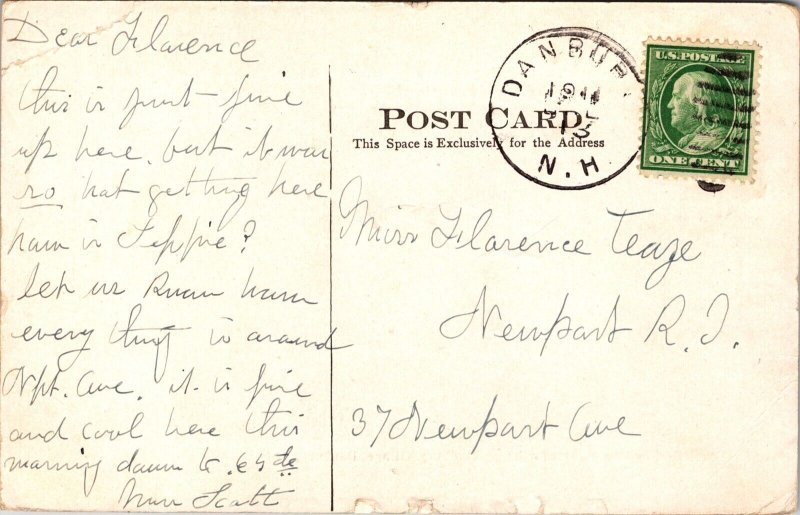 Dear Florence
this is just fine
up here. but it was
so hot getting here
how is
let us know how
every thing is around
Npt. Ave. it is fine
and cool here this
morning down to 65
Scott
DANBURY
1911
13
N.H.
U.S. POSTAGE
ONE CENT
POST CARD
This Space is Exclusively for the Address
Miss Florence Teaze
Newport R.I.
37 Newport Ave